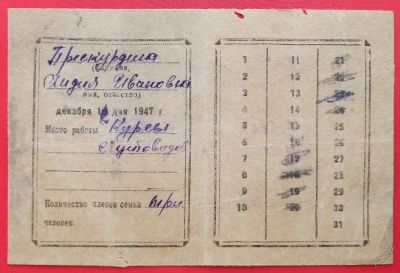 Прескурдина
Лидия Ивановна
ный, отчество)
декабря 1 дня 1947 г.
Место работы
Количество членов семьи три
человек.
1 11 21
2 12 22
3 13 23
4 14 24
5 15 25
6 16 26
7 17 27
8 18 28
9 19 29
10 20 30
31